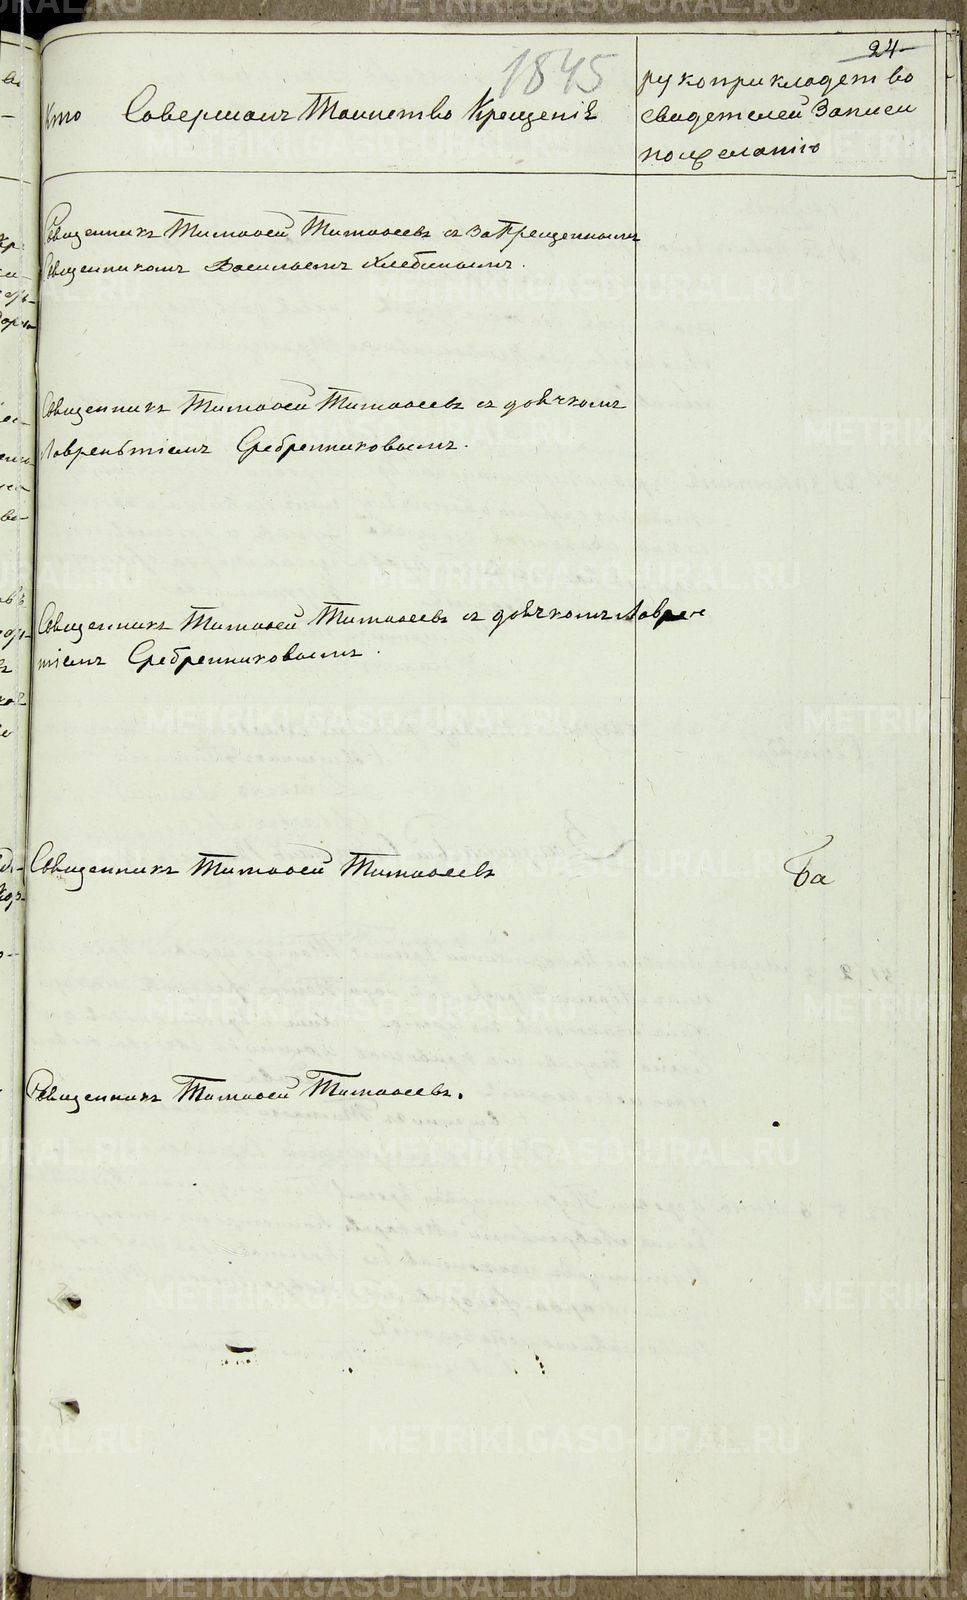 1845
24
Кто Совершалъ Таинство Крещенiя
рукоприкладство
свидетелей Записи
пожеланiю
Священникъ Тимофей Тимофеевъ съ Запрещеннымъ
Священникомъ Васильемъ Хлебинымъ.
Священникъ Тимофей Тимофеевъ съ дьячкомъ
Лаврентiемъ Сребренниковымъ.
Священникъ Тимофей Тимофеевъ съ дьячкомъ Лаврен
тiемъ Сребренниковымъ.
Священникъ Тимофей Тимофеевъ
ба
Священникъ Тимофей Тимофеевъ.
METRIKI.GASO-URAL.RU